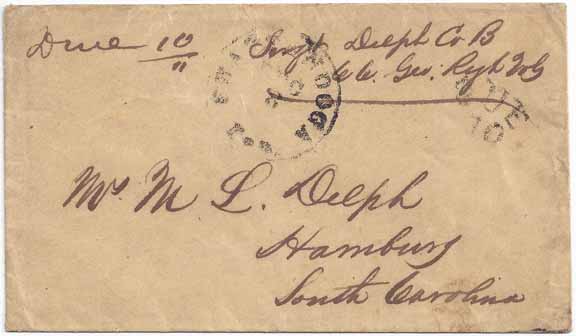 Due 10
Sergt Delph Co B
66. Geo. Regt Vols
DUE
10
Mrs M L. Delph
Hamburg
South Carolina